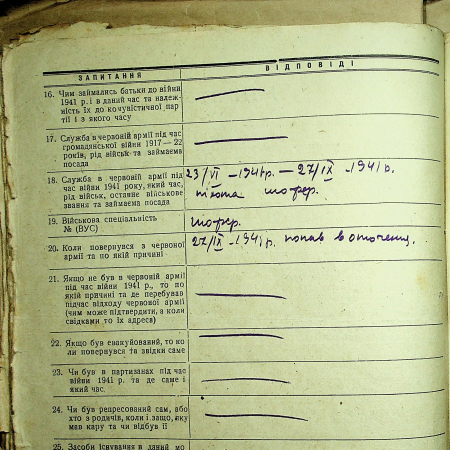 ЗАПИТАННЯ
ВІДПОВІДІ
16. Чим займались батьки до війни
1941 р. і в даний час та належ-
ність їх до комуністичної пар-
тії і з якого часу
17. Служба в червоній армії під час
громадянської війни 1917—22
років, рід військ та займаєма
посада
18. Служба в червоній армії під
час війни 1941 року, який час,
рід військ, останнє військове
звання та займаєма посада
23/VI – 1941 р. – 27/IX – 1941 р.
піхота шофер.
19. Військова спеціальність
№ (ВУС)
шофер.
20. Коли повернувся з червоної
армії та по якій причині
27/IX – 1941 р. попав в оточення.
21. Якщо не був в червоній армії
під час війни 1941 р., то по
якій причині та де перебував
підчас відходу червоної армії
(чим може підтвердити, а коли
свідками то їх адреса)
22. Якщо був евакуйований, то ко-
ли повернувся та звідки саме
23. Чи був в партизанах під час
війни 1941 р. та де саме і
який час.
24. Чи був репресований сам, або
хто з родичів, коли і защо, яку
мав кару та чи відбув її
25. Засоби існування в даний